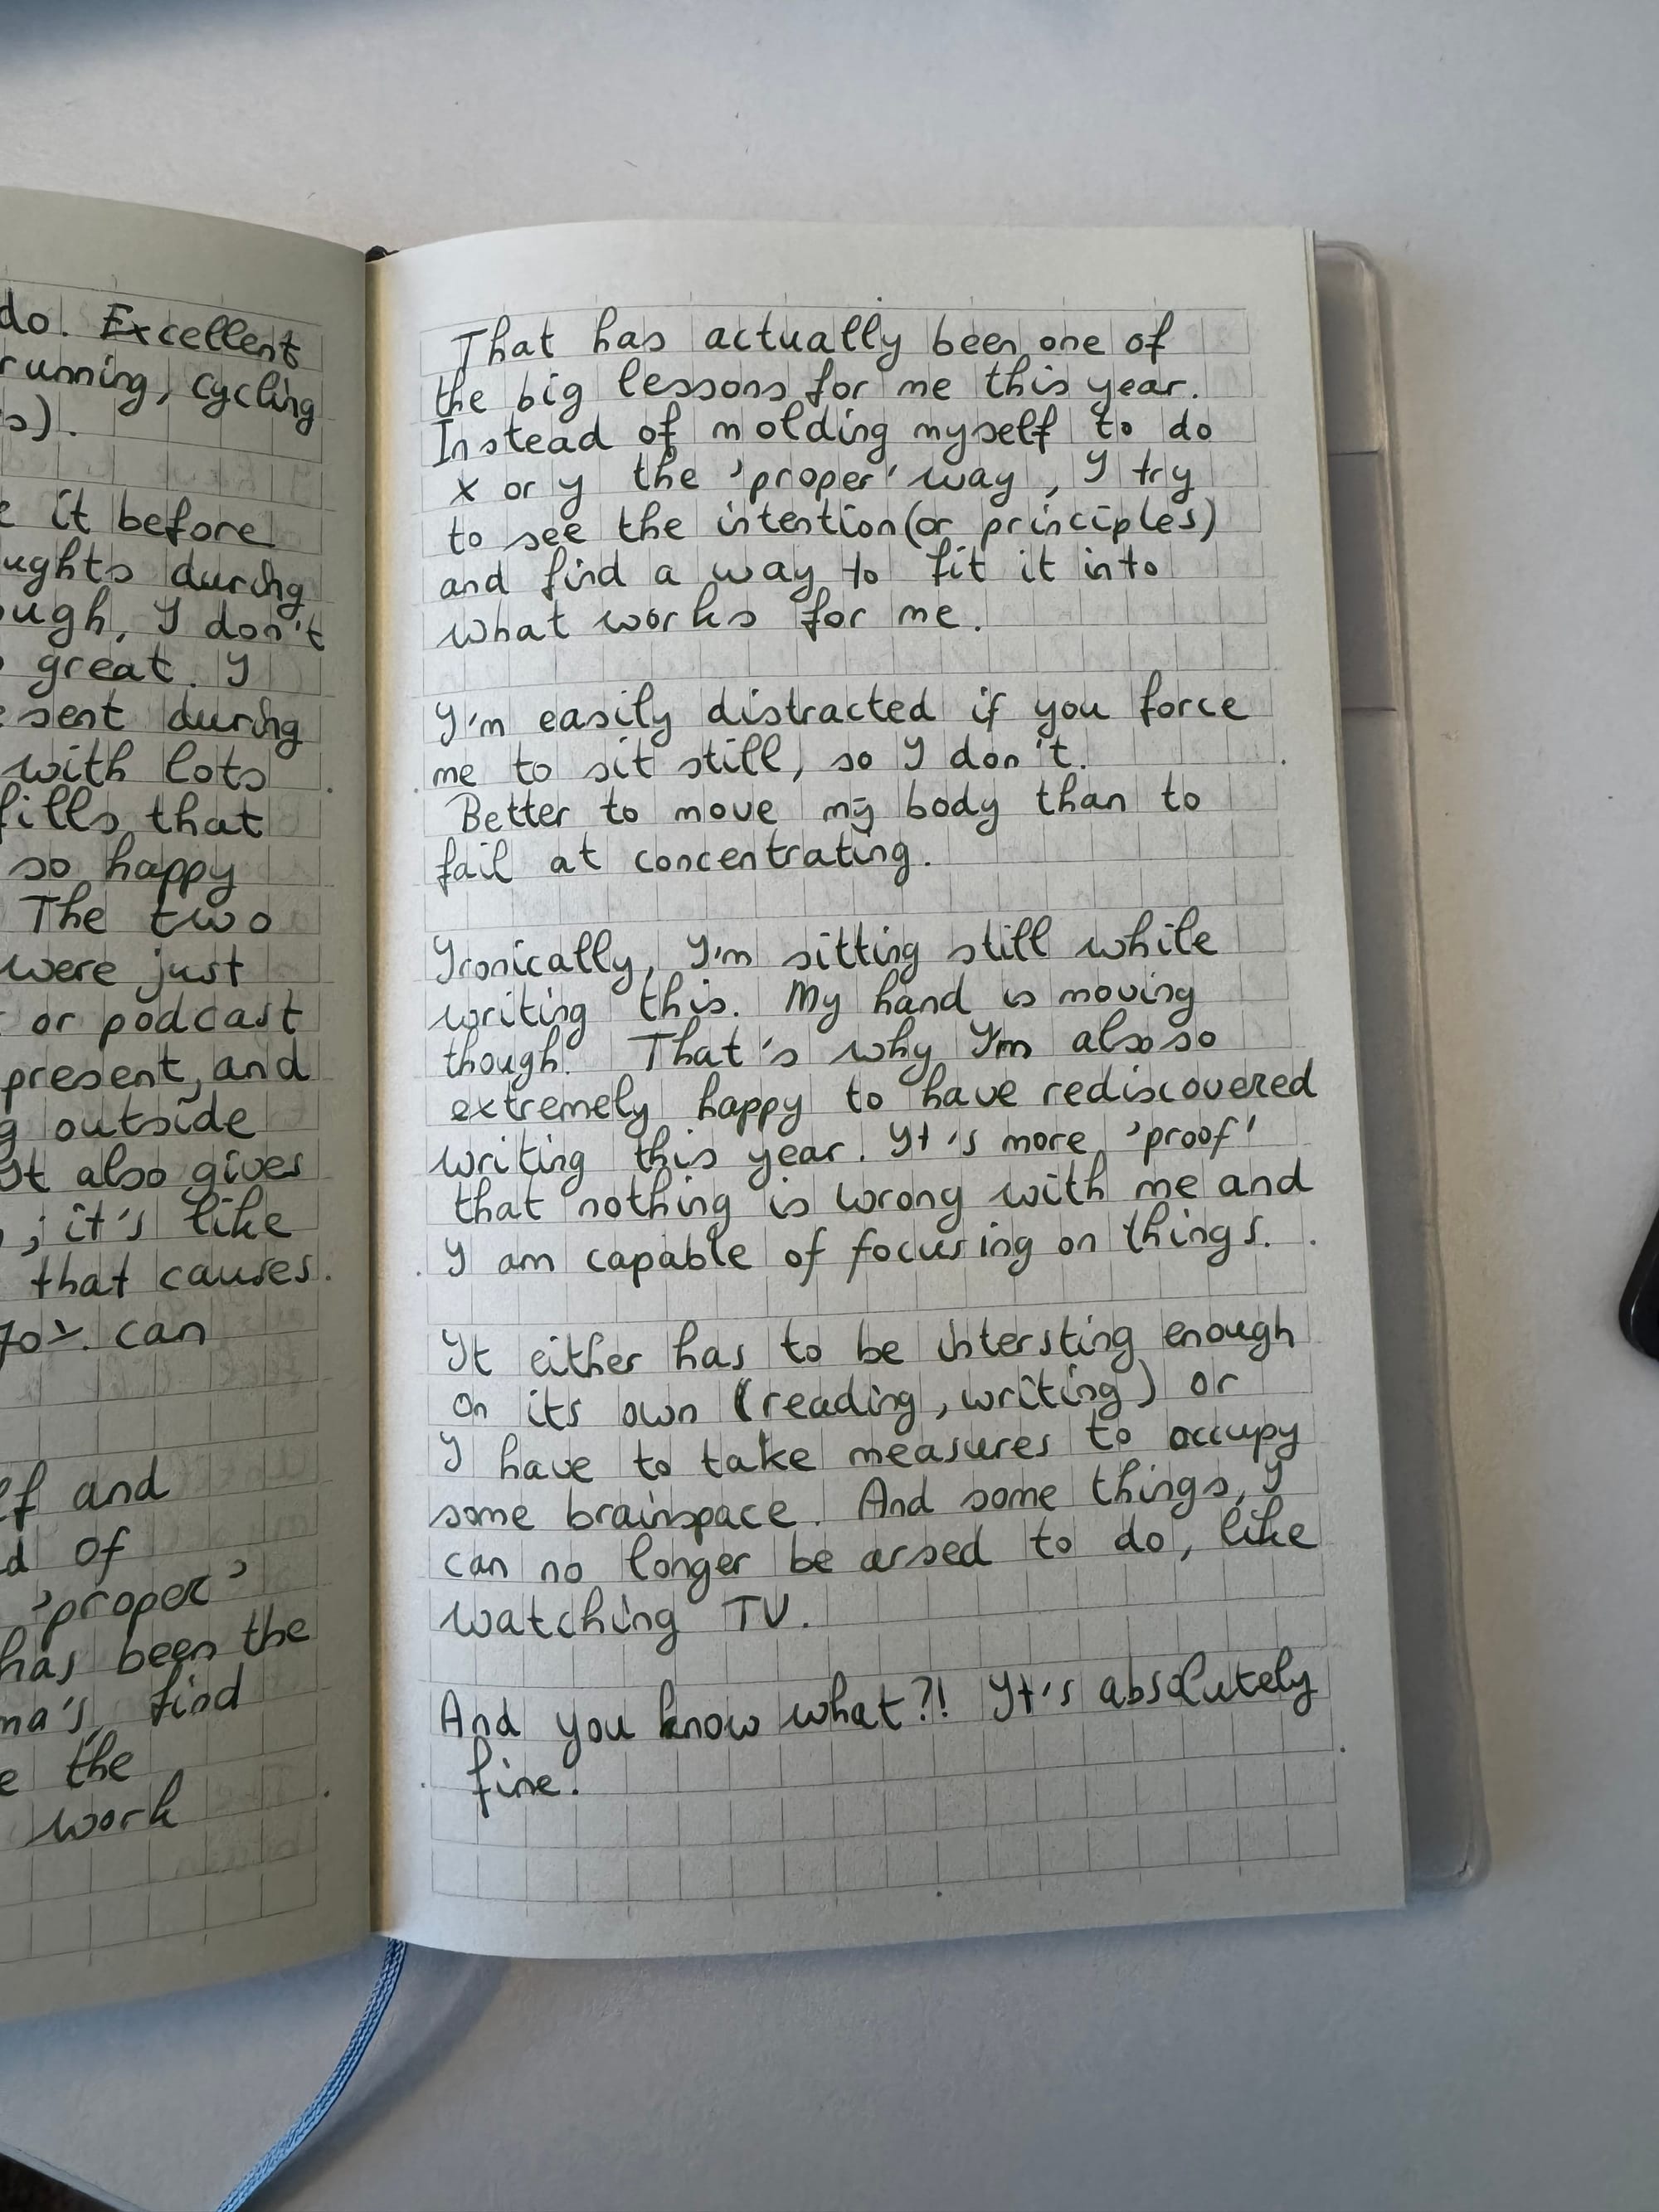 do. Excellent
running, cycling
s).
it before
ughts during
ough, I don't
great. I
sent during
with lots
fills that
so happy
The two
were just
or podcast
present, and
outside
It also gives
; it's like
that causes.
can
and
of
'proper'
has been the
find
the
work
That has actually been one of
the big lessons for me this year.
Instead of molding myself to do
x or y the 'proper' way, I try
to see the intention (or principles)
and find a way to fit it into
what works for me.
I'm easily distracted if you force
me to sit still, so I don't.
Better to move my body than to
fail at concentrating.
Ironically, I'm sitting still while
writing this. My hand is moving
though. That's why I'm also so
extremely happy to have rediscovered
writing this year. It's more 'proof'
that nothing is wrong with me and
I am capable of focusing on things.
It either has to be intersting enough
on its own (reading, writing) or
I have to take measures to occupy
some brainspace. And some things, I
can no longer be arsed to do, like
watching TV.
And you know what?! It's absolutely
fine.